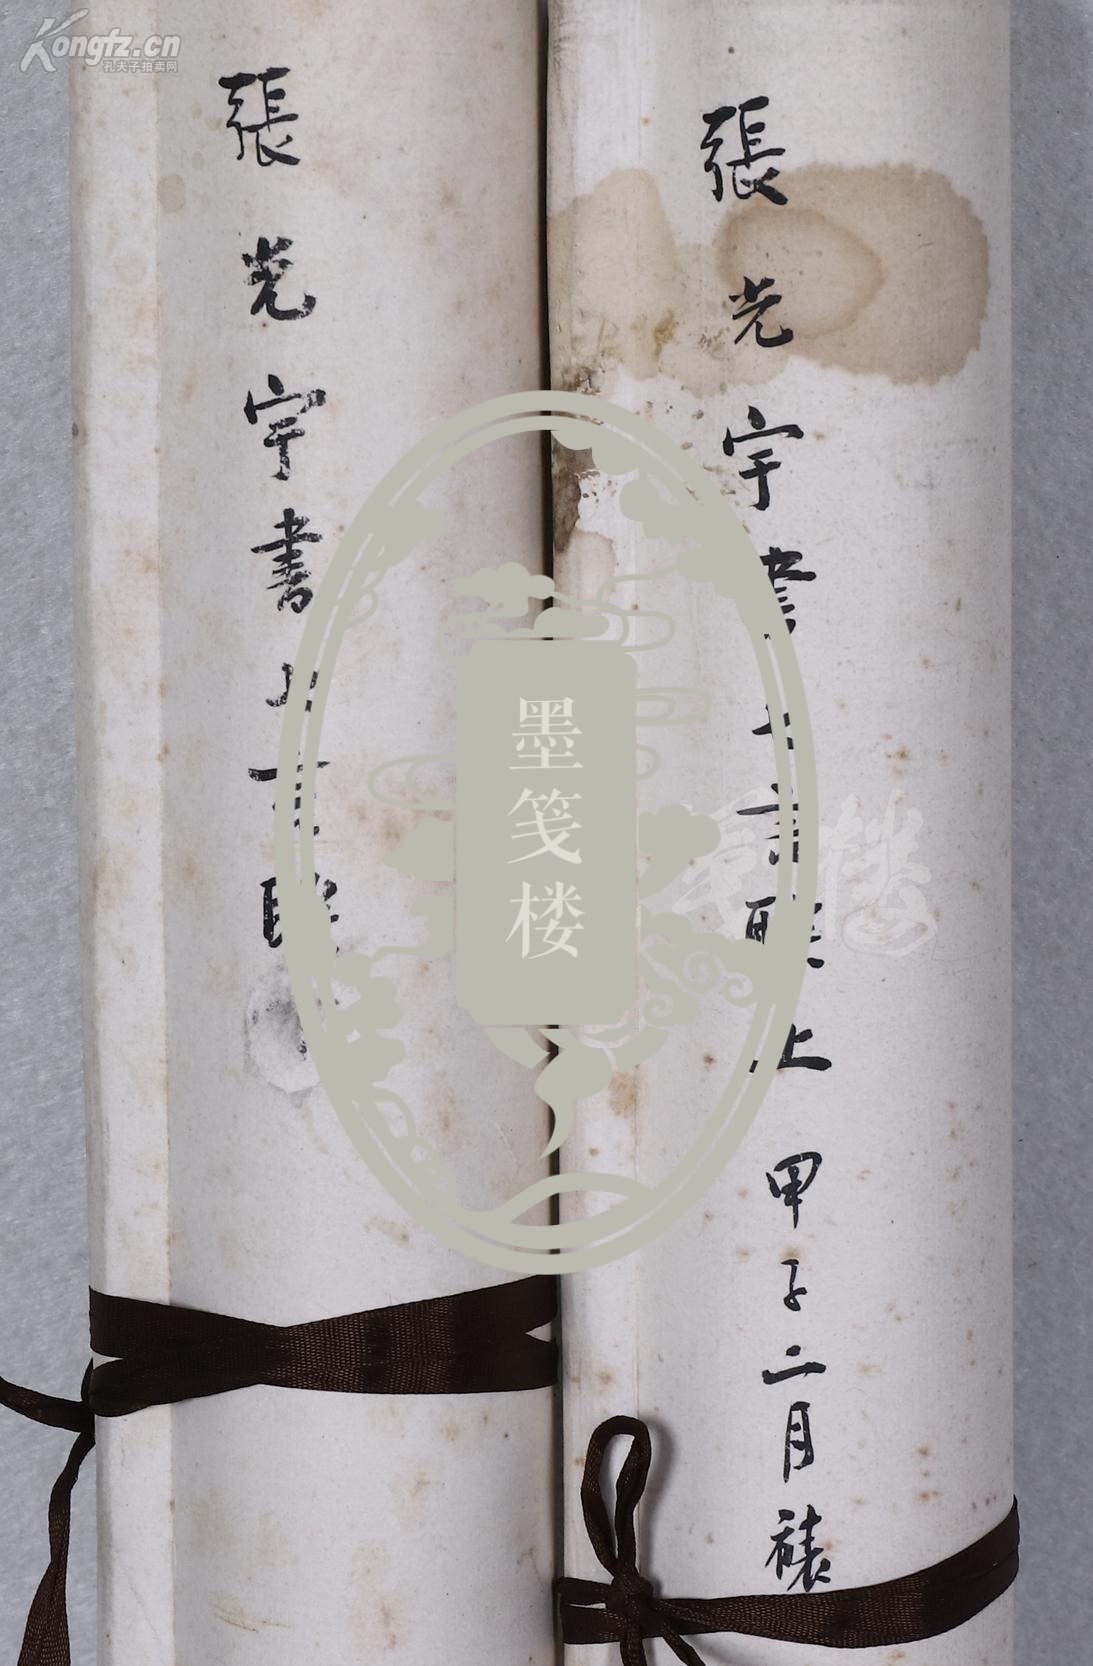 Kongfz.cn
孔夫子拍卖网
張光宇書七言聯上 甲子二月裱
張光宇書七言聯下
墨笺楼